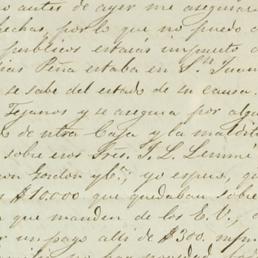 antes de ayer me asegura
hechas, por lo que no puedo
publicos estaràs impuesto
Peña estaba en Sn. Juan
se sabe del estado de su causa.
Tejanos y se asegura por algu
de ntra Casa y la maldit
sobre esos Sres. J. L. Lemmé
Gordon y Ca; yo espero, que
$10.000. que quedaban sobre
que manden de los E. U.,
un pago alli de $300.
no hay novedad